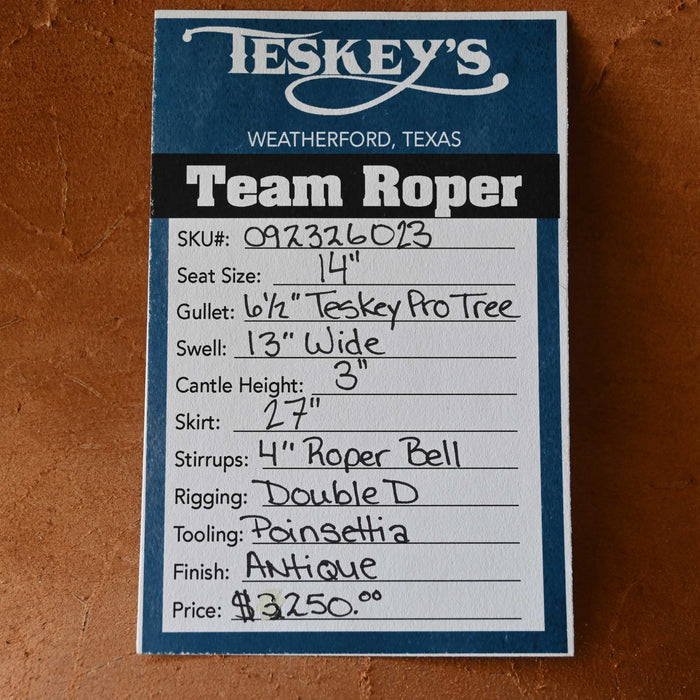 TESKEY'S
WEATHERFORD, TEXAS
Team Roper
SKU#: 092326023
Seat Size: 14"
Gullet: 6½" Teskey Pro Tree
Swell: 13" Wide
Cantle Height: 3"
Skirt: 27"
Stirrups: 4" Roper Bell
Rigging: Double D
Tooling: Poinsettia
Finish: Antique
Price: $3,250.00